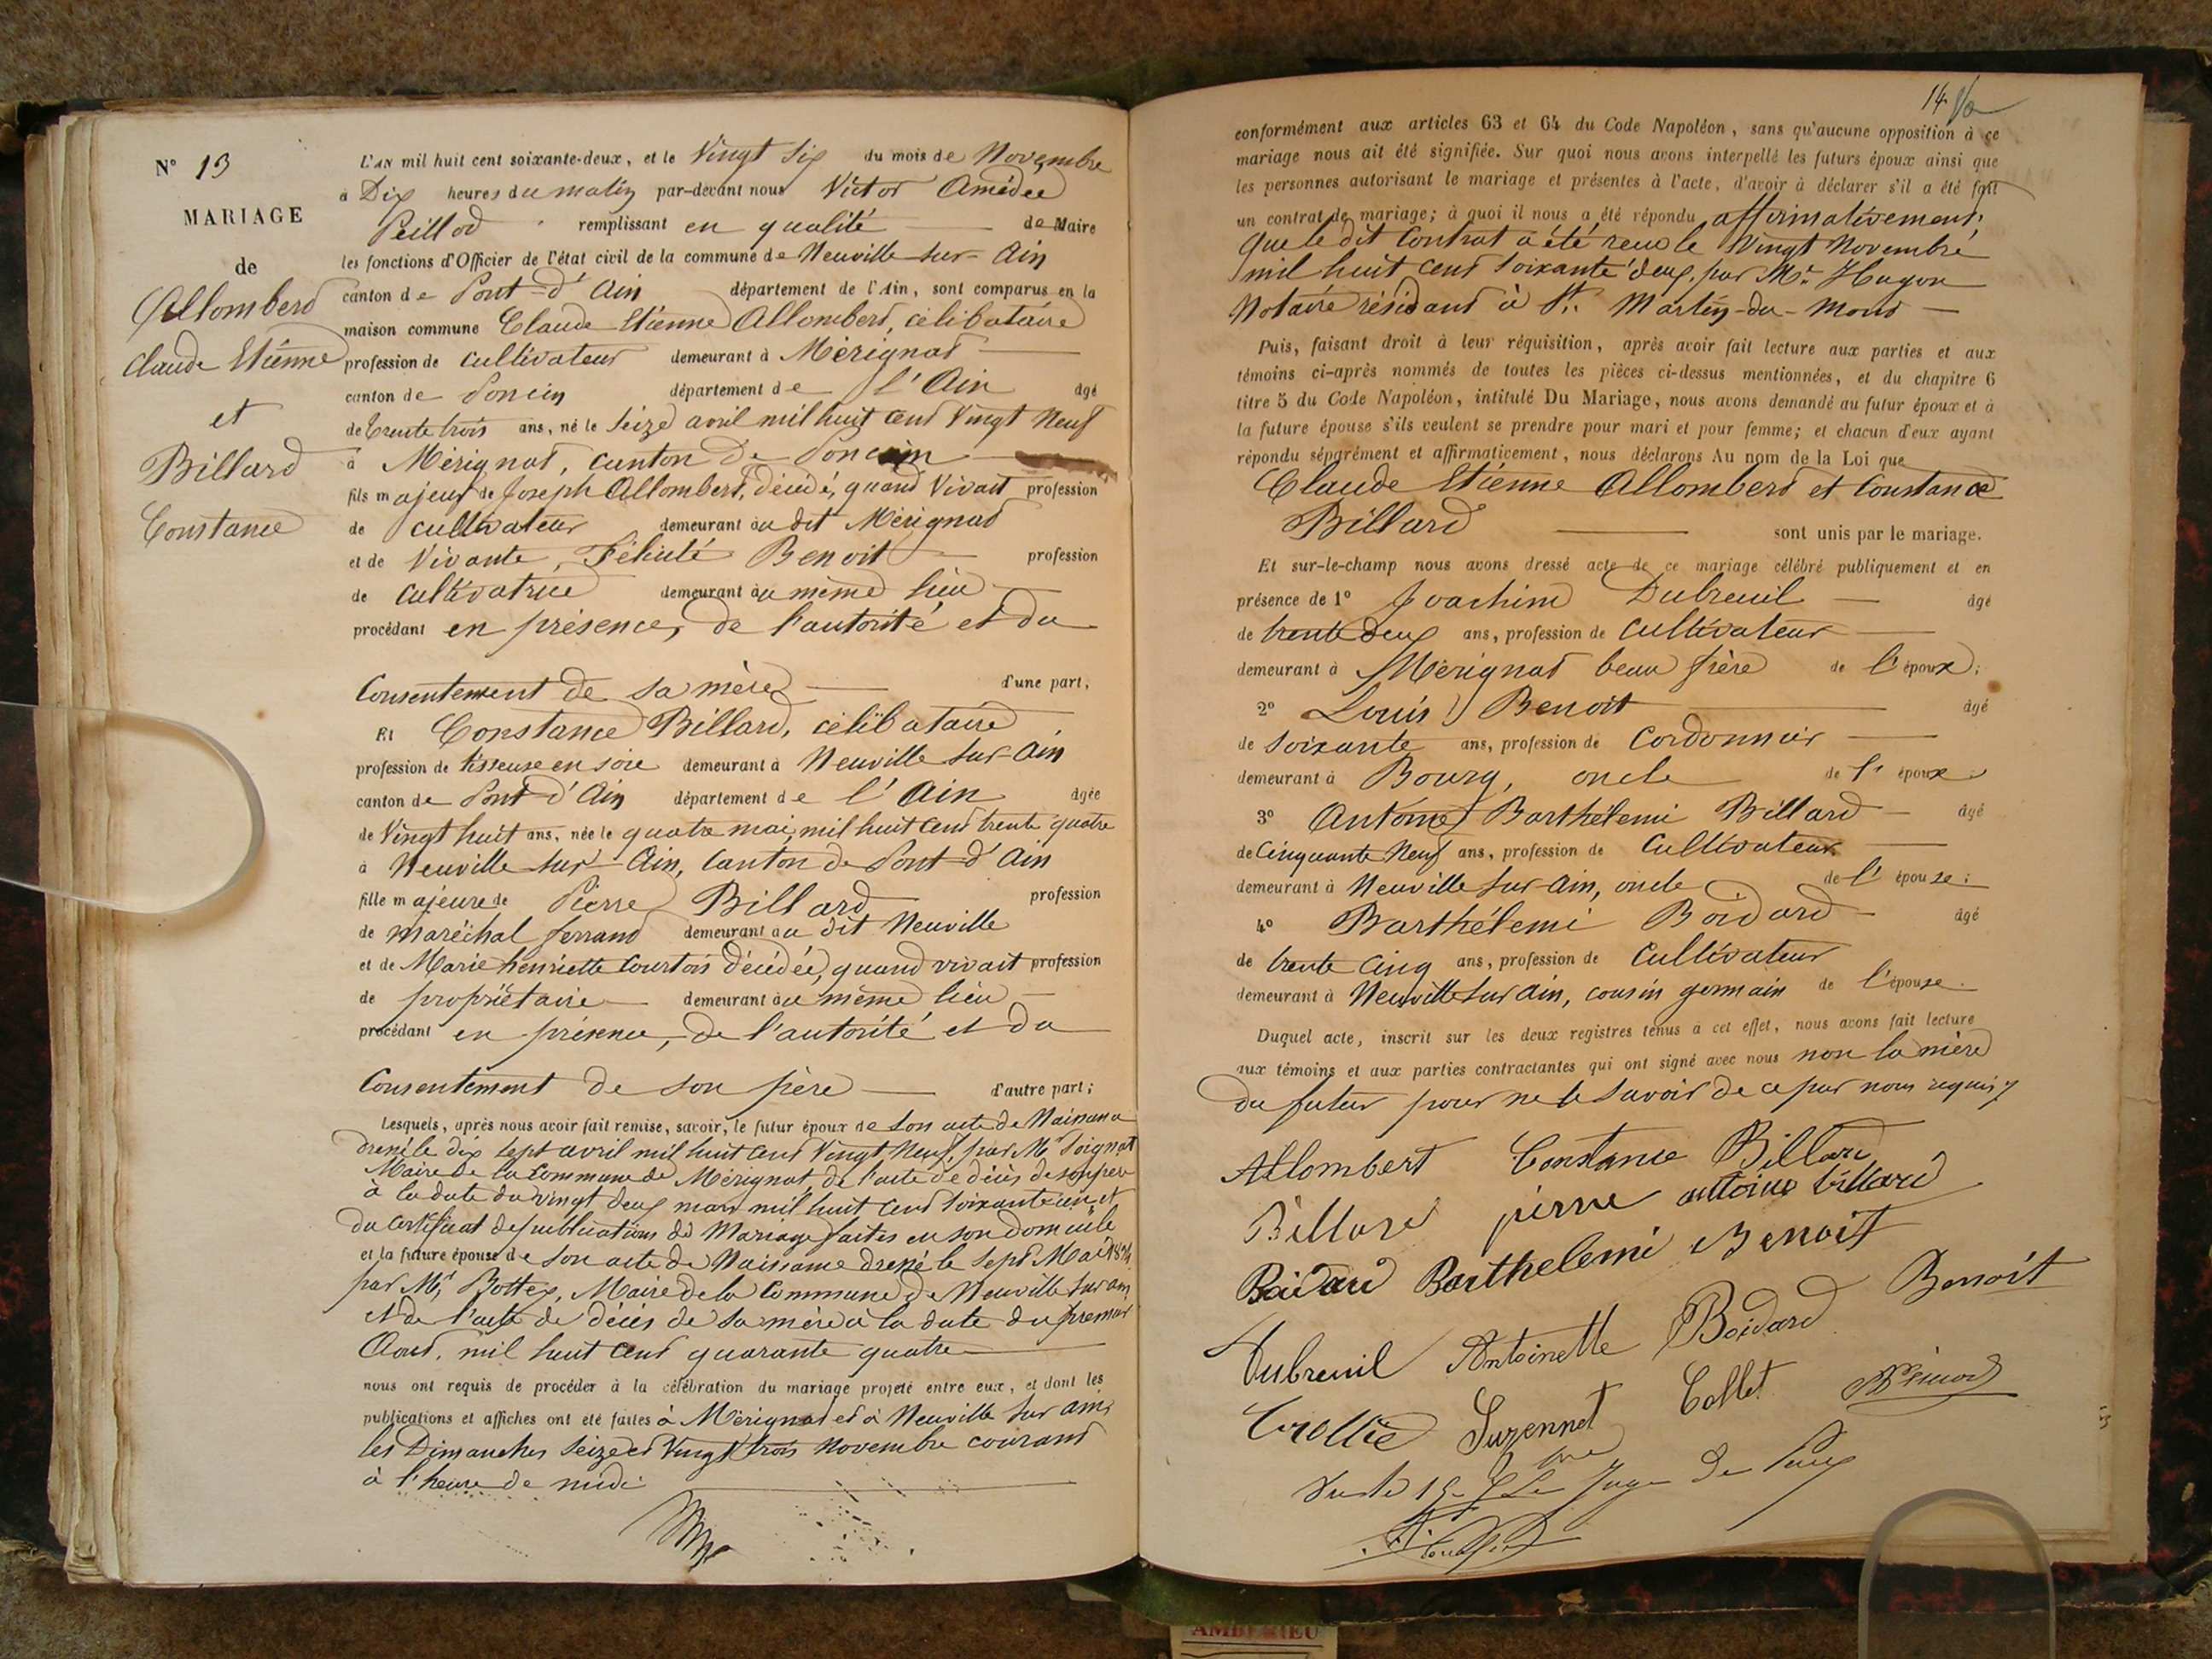 N° 13
MARIAGE
de
Allombert
Claude Etienne
et
Billard
Constance
L'AN mil huit cent soixante-deux, et le Vingt Six du mois de Novembre
à Dix heures du matin par-devant nous Victor Amédée
Peillod remplissant en qualité de Maire
les fonctions d'Officier de l'état civil de la commune de Neuville sur Ain
canton de Pont-d'Ain département de l'Ain, sont comparus en la
maison commune Claude Etienne Allombert, célibataire
profession de cultivateur demeurant à Mérignat
canton de Poncin département de l'Ain âgé
de trente trois ans, né le Seize avril mil huit cent Vingt Neuf
à Mérignat, canton de Poncin
fils majeur de Joseph Allombert, décédé, quand Vivait profession
de cultivateur demeurant au dit Mérignat
et de Vivante, Félicité Benoit profession
de cultivatrice demeurant au même lieu
procédant en présence, de l'autorité et du
Consentement de sa mère d'une part,
Et Constance Billard, célibataire
profession de tisseuse en soie demeurant à Neuville sur Ain
canton de Pont d'Ain département de l'Ain âgée
de Vingt huit ans, née le quatre mai, mil huit cent trente quatre
à Neuville sur Ain, Canton de Pont d'Ain
fille majeure de Pierre Billard profession
de maréchal ferrand demeurant au dit Neuville
et de Marie henriette Courtois décédée, quand vivait profession
de propriétaire demeurant au même lieu
procédant en présence, de l'autorité et du
Consentement de son père d'autre part;
Lesquels, après nous avoir fait remise, savoir, le futur époux de son acte de Naissance
dressé le dix sept avril mil huit cent Vingt Neuf, par Mr Soignat
Maire de la Commune de Mérignat, de l'acte de décès de son père
à la date du vingt deux mars mil huit cent soixante un, et
du certificat de publications de Mariage faites en son domicile
et la future épouse de son acte de Naissance dressé le sept Mai 1834
par Mr Bottex, Maire de la Commune de Neuville sur ain,
et de l'acte de décès de sa mère à la date du premier
Aout, mil huit cent quarante quatre
nous ont requis de procéder à la célébration du mariage projeté entre eux, et dont les
publications et affiches ont été faites à Mérignat et à Neuville sur ain,
les Dimanches Seize et Vingt trois Novembre courant
à l'heure de midi
14
conformément aux articles 63 et 64 du Code Napoléon, sans qu'aucune opposition à ce
mariage nous ait été signifiée. Sur quoi nous avons interpellé les futurs époux ainsi que
les personnes autorisant le mariage et présentes à l'acte, d'avoir à déclarer s'il a été fait
un contrat de mariage; à quoi il nous a été répondu affirmativement,
que le dit Contrat a été recu le Vingt Novembre
mil huit cent soixante deux, par Mr. Hugon
Notaire résidant à St. Martin-du-Mont
Puis, faisant droit à leur réquisition, après avoir fait lecture aux parties et aux
témoins ci-après nommés de toutes les pièces ci-dessus mentionnées, et du chapitre 6
titre 5 du Code Napoléon, intitulé Du Mariage, nous avons demandé au futur époux et à
la future épouse s'ils veulent se prendre pour mari et pour femme; et chacun d'eux ayant
répondu séparément et affirmativement, nous déclarons Au nom de la Loi que
Claude Etienne Allombert et Constance
Billard sont unis par le mariage.
Et sur-le-champ nous avons dressé acte de ce mariage célébré publiquement et en
présence de 1° Joachim Dubreuil âgé
de trente deux ans, profession de Cultivateur
demeurant à Mérignat beau frère de l'époux;
2° Louis Benoit âgé
de Soixante ans, profession de Cordonnier
demeurant à Bourg, oncle de l'époux;
3° Antoine Barthélemi Billard âgé
de Cinquante Neuf ans, profession de Cultivateur
demeurant à Neuville sur ain, oncle de l'épouse;
4° Barthélemi Boidard âgé
de trente cinq ans, profession de Cultivateur
demeurant à Neuville sur ain, cousin germain de l'épouse.
Duquel acte, inscrit sur les deux registres tenus à cet effet, nous avons fait lecture
aux témoins et aux parties contractantes qui ont signé avec nous non la mère
du futur pour ne le savoir de ce par nous requis
Allombert Constance Billard
Billard pierre antoine billard
Boidard Barthelemi Benoit
Dubreuil Antoinette Boidard Benoit
Suzennet Collet
Juge de Paix
AMBERIEU